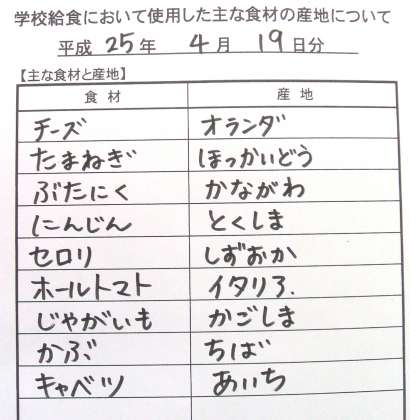 学校給食において使用した主な食材の産地について
平成 25年 4月 19日分
【主な食材と産地】
食材 産地
チーズ オランダ
たまねぎ ほっかいどう
ぶたにく かながわ
にんじん とくしま
セロリ しずおか
ホールトマト イタリア.
じゃがいも かごしま
かぶ ちば
キャベツ あいち